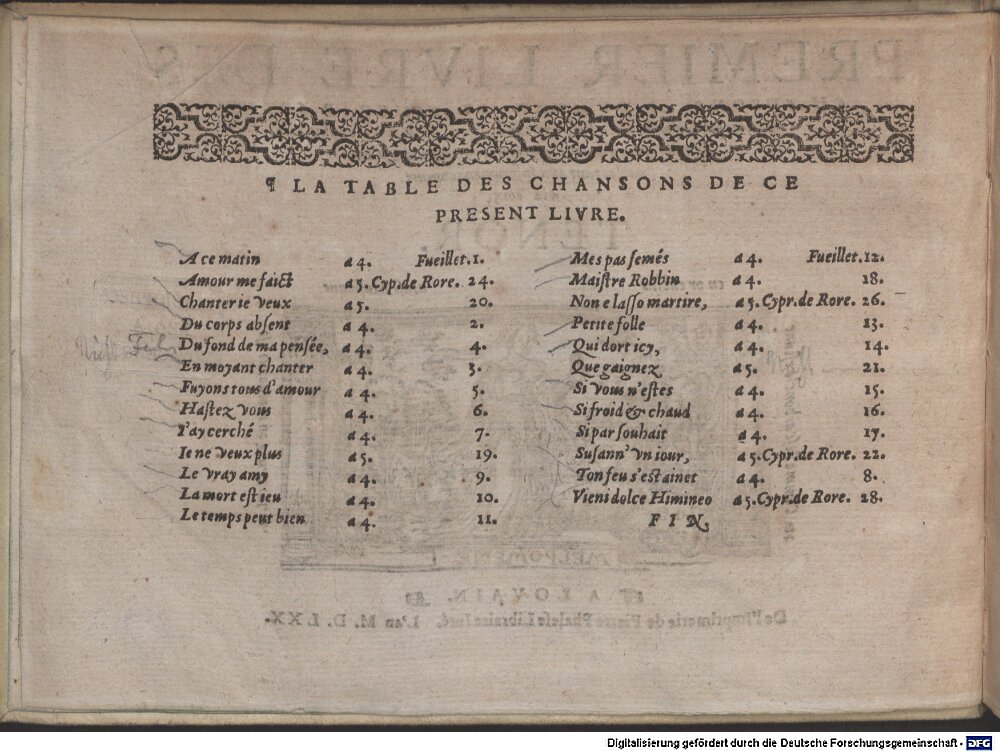 ¶ LA TABLE DES CHANSONS DE CE
PRESENT LIVRE.
A ce matin a 4. Fueillet. 1.
Amour me faict a 5. Cyp. de Rore. 24.
Chanter ie veux a 5. 20.
Du corps absent a 4. 2.
Du fond de ma pensée, a 4. 4.
En moyant chanter a 4. 3.
Fuyons tous d'amour a 4. 5.
Hastez vous a 4. 6.
I'ay cerché a 4. 7.
Ie ne veux plus a 5. 19.
Le vray amy a 4. 9.
La mort est ieu a 4. 10.
Le temps peut bien a 4. 11.
Mes pas semés a 4. Fueillet. 12.
Maistre Robbin a 4. 18.
Non e lasso martire, a 5. Cypr. de Rore. 26.
Petite folle a 4. 13.
Qui dort icy, a 4. 14.
Que gaignez a 5. 21.
Si vous n'estes a 4. 15.
Si froid & chaud a 4. 16.
Si par souhait a 4. 17.
Susann' vn iour, a 5. Cypr. de Rore. 22.
Ton feu s'estainct a 4. 8.
Vieni dolce Himineo a 5. Cypr. de Rore. 28.
F I N.
PREMIER LIVRE DES
TENOR
MELPOMENE
A LOVAIN.
De l'Imprimerie de Pierre Phalese Libraire Iuré. L'an M. D. LXX.
Digitalisierung gefördert durch die Deutsche Forschungsgemeinschaft - DFG